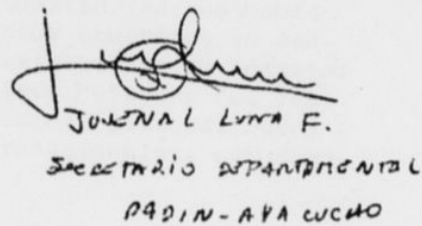 JUVENAL LUNA F.
SECRETARIO DEPARTAMENTAL
PADIN-AYACUCHO